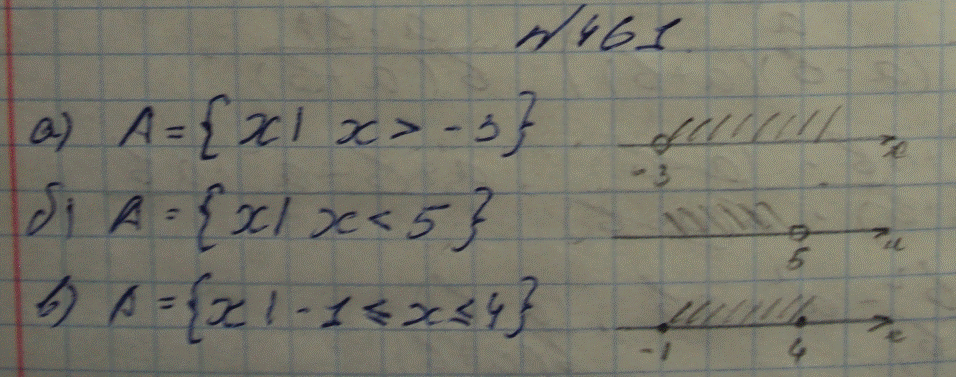 №461
а) A = { x | x > -3 } -3 x
б) A = { x | x < 5 } 5 x
в) A = { x | -1 ≤ x ≤ 4 } -1 4 x